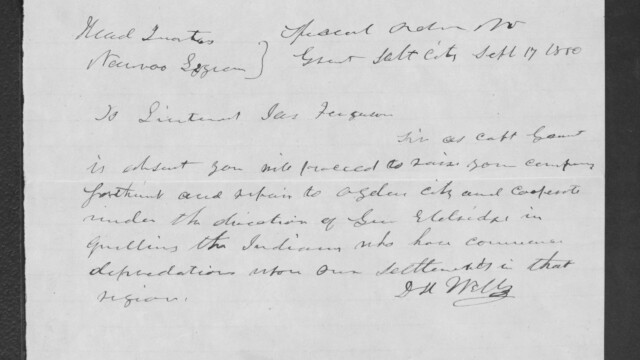 Head Quarters Special Order No
Nauvoo Legion } Great Salt City Sept 17 1850
To Lieutenant Jas Ferguson
Sir as Capt Grant
is absent you will proceed to raise your company
forthwith and repair to Ogden city and cooperate
under the direction of Gen Eldridge in
quelling the Indians who have commenced
depredations upon our settlements in that
region.
D H Wells